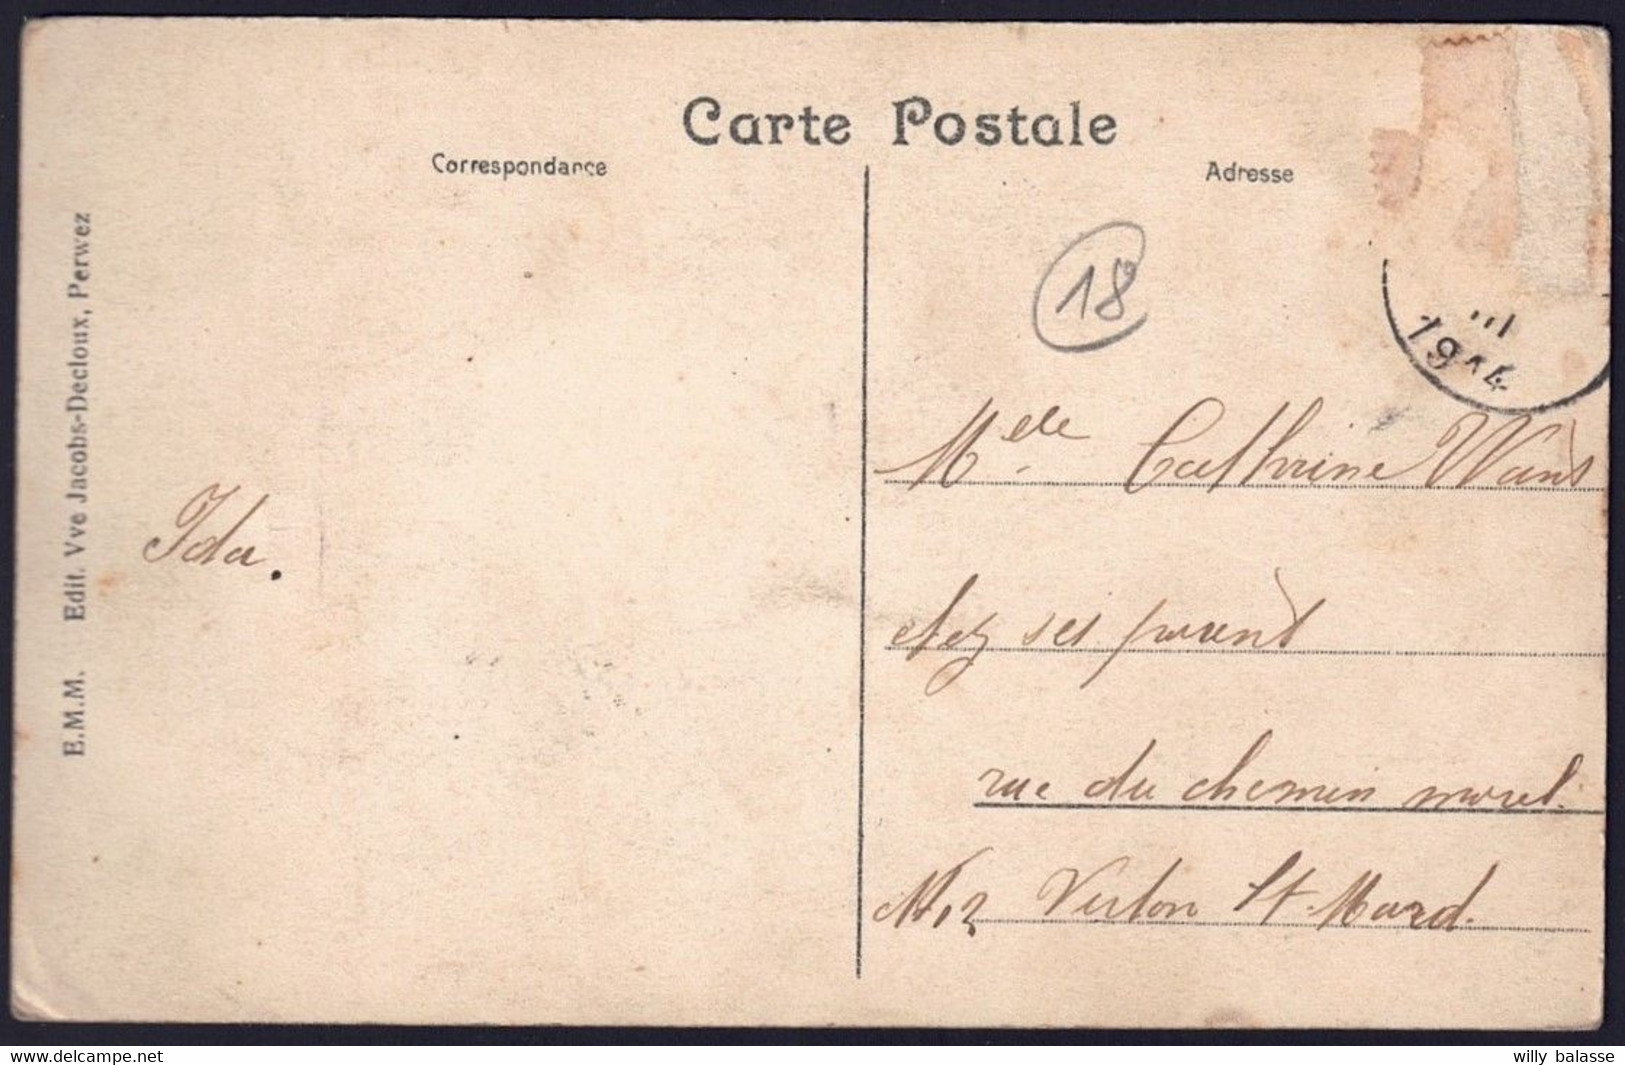 Carte Postale
Correspondance
Adresse
E.M.M. Edit. Vve Jacobs-Decloux, Perwez
18
1914
Ida.
Melle Cathrine Wans
chez ses parent
rue du chemin morel.
Virton St-Mard.
www.delcampe.net
willy balasse